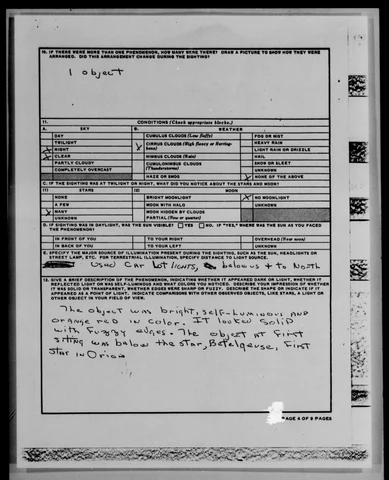 10. IF THERE WERE MORE THAN ONE PHENOMENON, HOW MANY WERE THERE? DRAW A PICTURE TO SHOW HOW THEY WERE
ARRANGED. DID THIS ARRANGEMENT CHANGE DURING THE SIGHTING?
1 object
11. CONDITIONS (Check appropriate blocks.)
A. SKY B. WEATHER
DAY CUMULUS CLOUDS (Low fluffy) FOG OR MIST
TWILIGHT X CIRRUS CLOUDS (High fleecy or Herring-bone) HEAVY RAIN
X NIGHT LIGHT RAIN OR DRIZZLE
X CLEAR NIMBUS CLOUDS (Rain) HAIL
PARTLY CLOUDY CUMULONIMBUS CLOUDS (Thunderstorms) SNOW OR SLEET
COMPLETELY OVERCAST UNKNOWN
HAZE OR SMOG X NONE OF THE ABOVE
C. IF THE SIGHTING WAS AT TWILIGHT OR NIGHT, WHAT DID YOU NOTICE ABOUT THE STARS AND MOON?
(1) STARS (2) MOON
NONE BRIGHT MOONLIGHT X NO MOONLIGHT
A FEW MOON WITH HALO UNKNOWN
X MANY MOON HIDDEN BY CLOUDS
UNKNOWN PARTIAL (New or quarter)
D. IF SIGHTING WAS IN DAYLIGHT, WAS THE SUN VISIBLE? YES NO. IF "YES," WHERE WAS THE SUN AS YOU FACED
THE PHENOMENON?
IN FRONT OF YOU TO YOUR RIGHT OVERHEAD (Near noon)
IN BACK OF YOU TO YOUR LEFT UNKNOWN
E. SPECIFY THE MAJOR SOURCE OF ILLUMINATION PRESENT DURING THE SIGHTING, SUCH AS THE SUN, HEADLIGHTS OR
STREET LAMP, ETC. FOR TERRESTRIAL ILLUMINATION, SPECIFY DISTANCE TO LIGHT SOURCE.
Used Car Lot lights, below us + to North
12. GIVE A BRIEF DESCRIPTION OF THE PHENOMENON, INDICATING WHETHER IT APPEARED DARK OR LIGHT, WHETHER IT
REFLECTED LIGHT OR WAS SELF-LUMINOUS AND WHAT COLORS YOU NOTICED. DESCRIBE YOUR IMPRESSION OF WHETHER
IT WAS SOLID OR TRANSPARENT, WHETHER EDGES WERE SHARP OR FUZZY. DESCRIBE THE SHAPE OR INDICATE IF IT
APPEARED AS A POINT OF LIGHT. INDICATE COMPARISONS WITH OTHER OBSERVED OBJECTS, LIKE STARS, A LIGHT OR
OTHER OBJECT IN YOUR FIELD OF VIEW.
The object was bright, self-luminous AND
orange red in color. It looked solid
with fuzzy edges. The object at first
siting was below the star, Betelgeuse, First
star in Orion
PAGE 4 OF 9 PAGES